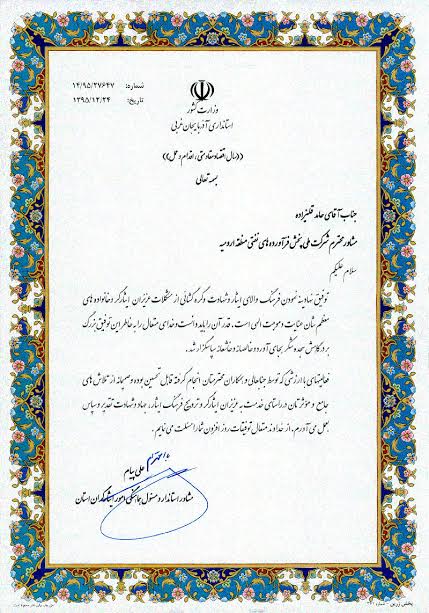 شماره: ۱۴/۹۵/۲۷۶۴۷
تاریخ: ۱۳۹۵/۱۲/۲۴
وزارت کشور
استانداری آذربایجان غربی
((سال اقتصاد مقاومتی، اقدام و عمل))
بسمه تعالی
جناب آقای حامد قلیزاده
مشاور محترم شرکت ملی پخش فرآورده های نفتی منطقه ارومیه
سلام علیکم
توفیق نهادینه نمودن فرهنگ والای ایثار و شهادت و گره گشائی از مشکلات عزیزان ایثارگر و خانواده های
معظم شان عنایت و موهبت الهی است. قدر آن را باید دانست و خدای متعال را به خاطر این توفیق بزرگ
بر درگاهش سجده شکر بجای آورد و خالصانه و خاشعانه سپاسگزار شد.
فعالیتهای با ارزشی که توسط جنابعالی و همکاران محترمتان انجام گرفته قابل تحسین بوده و صمیمانه از تلاش های
جامع و مؤثرتان در راستای خدمت به عزیزان ایثارگر و ترویج فرهنگ ایثار، جهاد و شهادت تقدیر و سپاس
بعمل می آورم. از خداوند متعال توفیقات روز افزون شما را مسئلت می نمایم.
با احترام
علی پیام
مشاور استاندار و مسئول هماهنگی امور ایثارگران استان
پخش زرین - شماره